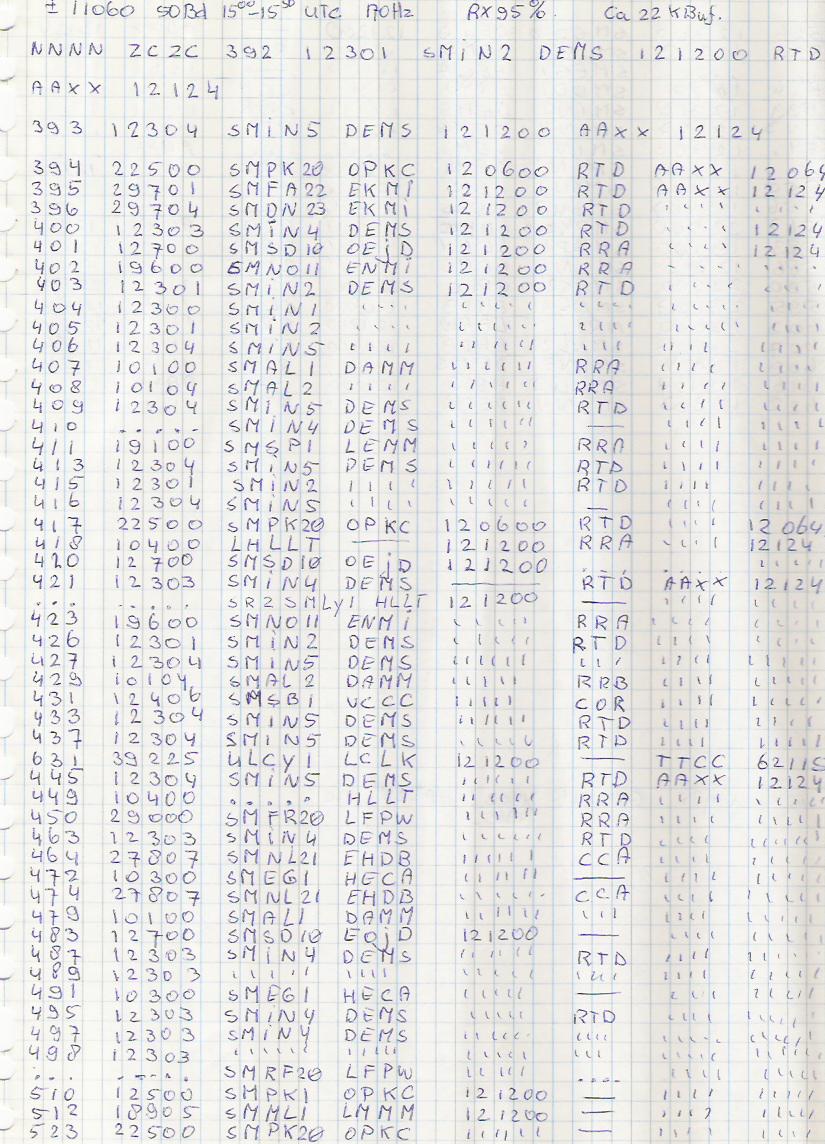 ± 11060 50Bd 15⁰⁰-15³⁰ UTC 170Hz RX 95%. Ca 22 KBuf.
NNNN ZCZC 392 12301 SMiN2 DEMS 121200 RTD
AAXX 12124
393 12304 SMiN5 DEMS 121200 AAXX 12124
394 22500 SMPK20 OPKC 120600 RTD AAXX 12064
395 29701 SMFA22 EKMI 121200 RTD AAXX 12124
396 29704 SMDN23 EKMI 121200 RTD '''' '''''
400 12303 SMiN4 DEMS 121200 RTD '''' 12124
401 12700 SMSD10 OEjD 121200 RRA '''' 12124
402 19600 SMNO11 ENMi 121200 RRA '''' '''''
403 12301 SMiN2 DEMS 121200 RTD '''' '''''
404 12300 SMiN1 '''' '''''' '''' '''' '''''
405 12301 SMiN2 '''' '''''' '''' '''' '''''
406 12304 SMiN5 '''' '''''' ''' '''' '''''
407 10100 SMAL1 DAMM '''''' RRA '''' '''''
408 10104 SMAL2 '''' '''''' RRA '''' '''''
409 12304 SMiN5 DEMS '''''' RTD '''' '''''
410 ..... SMiN4 DEMS '''''' — '''' '''''
411 19100 SMSP1 LEMM '''''' RRA '''' '''''
413 12304 SMiN5 DEMS '''''' RTD '''' '''''
415 12301 SMiN2 '''' '''''' RTD '''' '''''
416 12304 SMiN5 '''' '''''' — '''' '''''
417 22500 SMPK20 OPKC 120600 RTD '''' 12064
418 10400 LHLLT — 121200 RRA '''' 12124
420 12700 SMSD10 OEjD 121200 ... '''' '''''
421 12303 SMiN4 DEMS — RTD AAXX 12124
... ..... SR2SMLy1 HLLT 121200 — '''' '''''
423 19600 SMNO11 ENMi '''''' RRA '''' '''''
426 12301 SMiN2 DEMS '''''' RTD '''' '''''
427 12304 SMiN5 DEMS '''''' ''' '''' '''''
429 10104 SMAL2 DAMM '''''' RRB '''' '''''
431 12406 SMSBi VCCC '''''' COR '''' '''''
433 12304 SMiN5 DEMS '''''' RTD '''' '''''
437 12304 SMiN5 DEMS '''''' RTD '''' '''''
631 39225 ULCY1 LCLK 121200 — TTCC 62115
445 12304 SMiN5 DEMS '''''' RTD AAXX 12124
449 10400 ..... HLLT '''''' RRA '''' '''''
450 29000 SMFR20 LFPW '''''' RRA '''' '''''
463 12303 SMiN4 DEMS '''''' RTD '''' '''''
464 27807 SMNL21 EHDB '''''' CCA '''' '''''
472 10300 SMEG1 HECA '''''' — '''' '''''
474 27807 SMNL21 EHDB '''''' CCA '''' '''''
479 10100 SMAL1 DAMM '''''' ''' '''' '''''
483 12700 SMSD10 EOjD 121200 — '''' '''''
487 12303 SMiN4 DEMS '''''' RTD '''' '''''
489 12303 ''''' '''' '''''' '''' '''' '''''
491 10300 SMEG1 HECA '''''' — '''' '''''
495 12303 SMiN4 DEMS '''''' RTD '''' '''''
497 12303 SMiN4 DEMS '''''' '''' '''' '''''
498 12303 ''''' ''''' '''''' ''' '''' '''''
... ..... SMRF20 LFPW '''''' .... '''' '''''
510 12500 SMPK1 OPKC 121200 — '''' '''''
512 18905 SMML1 LMMM 121200 — '''' '''''
523 22500 SMPK20 OPKC '''''' — '''' '''''